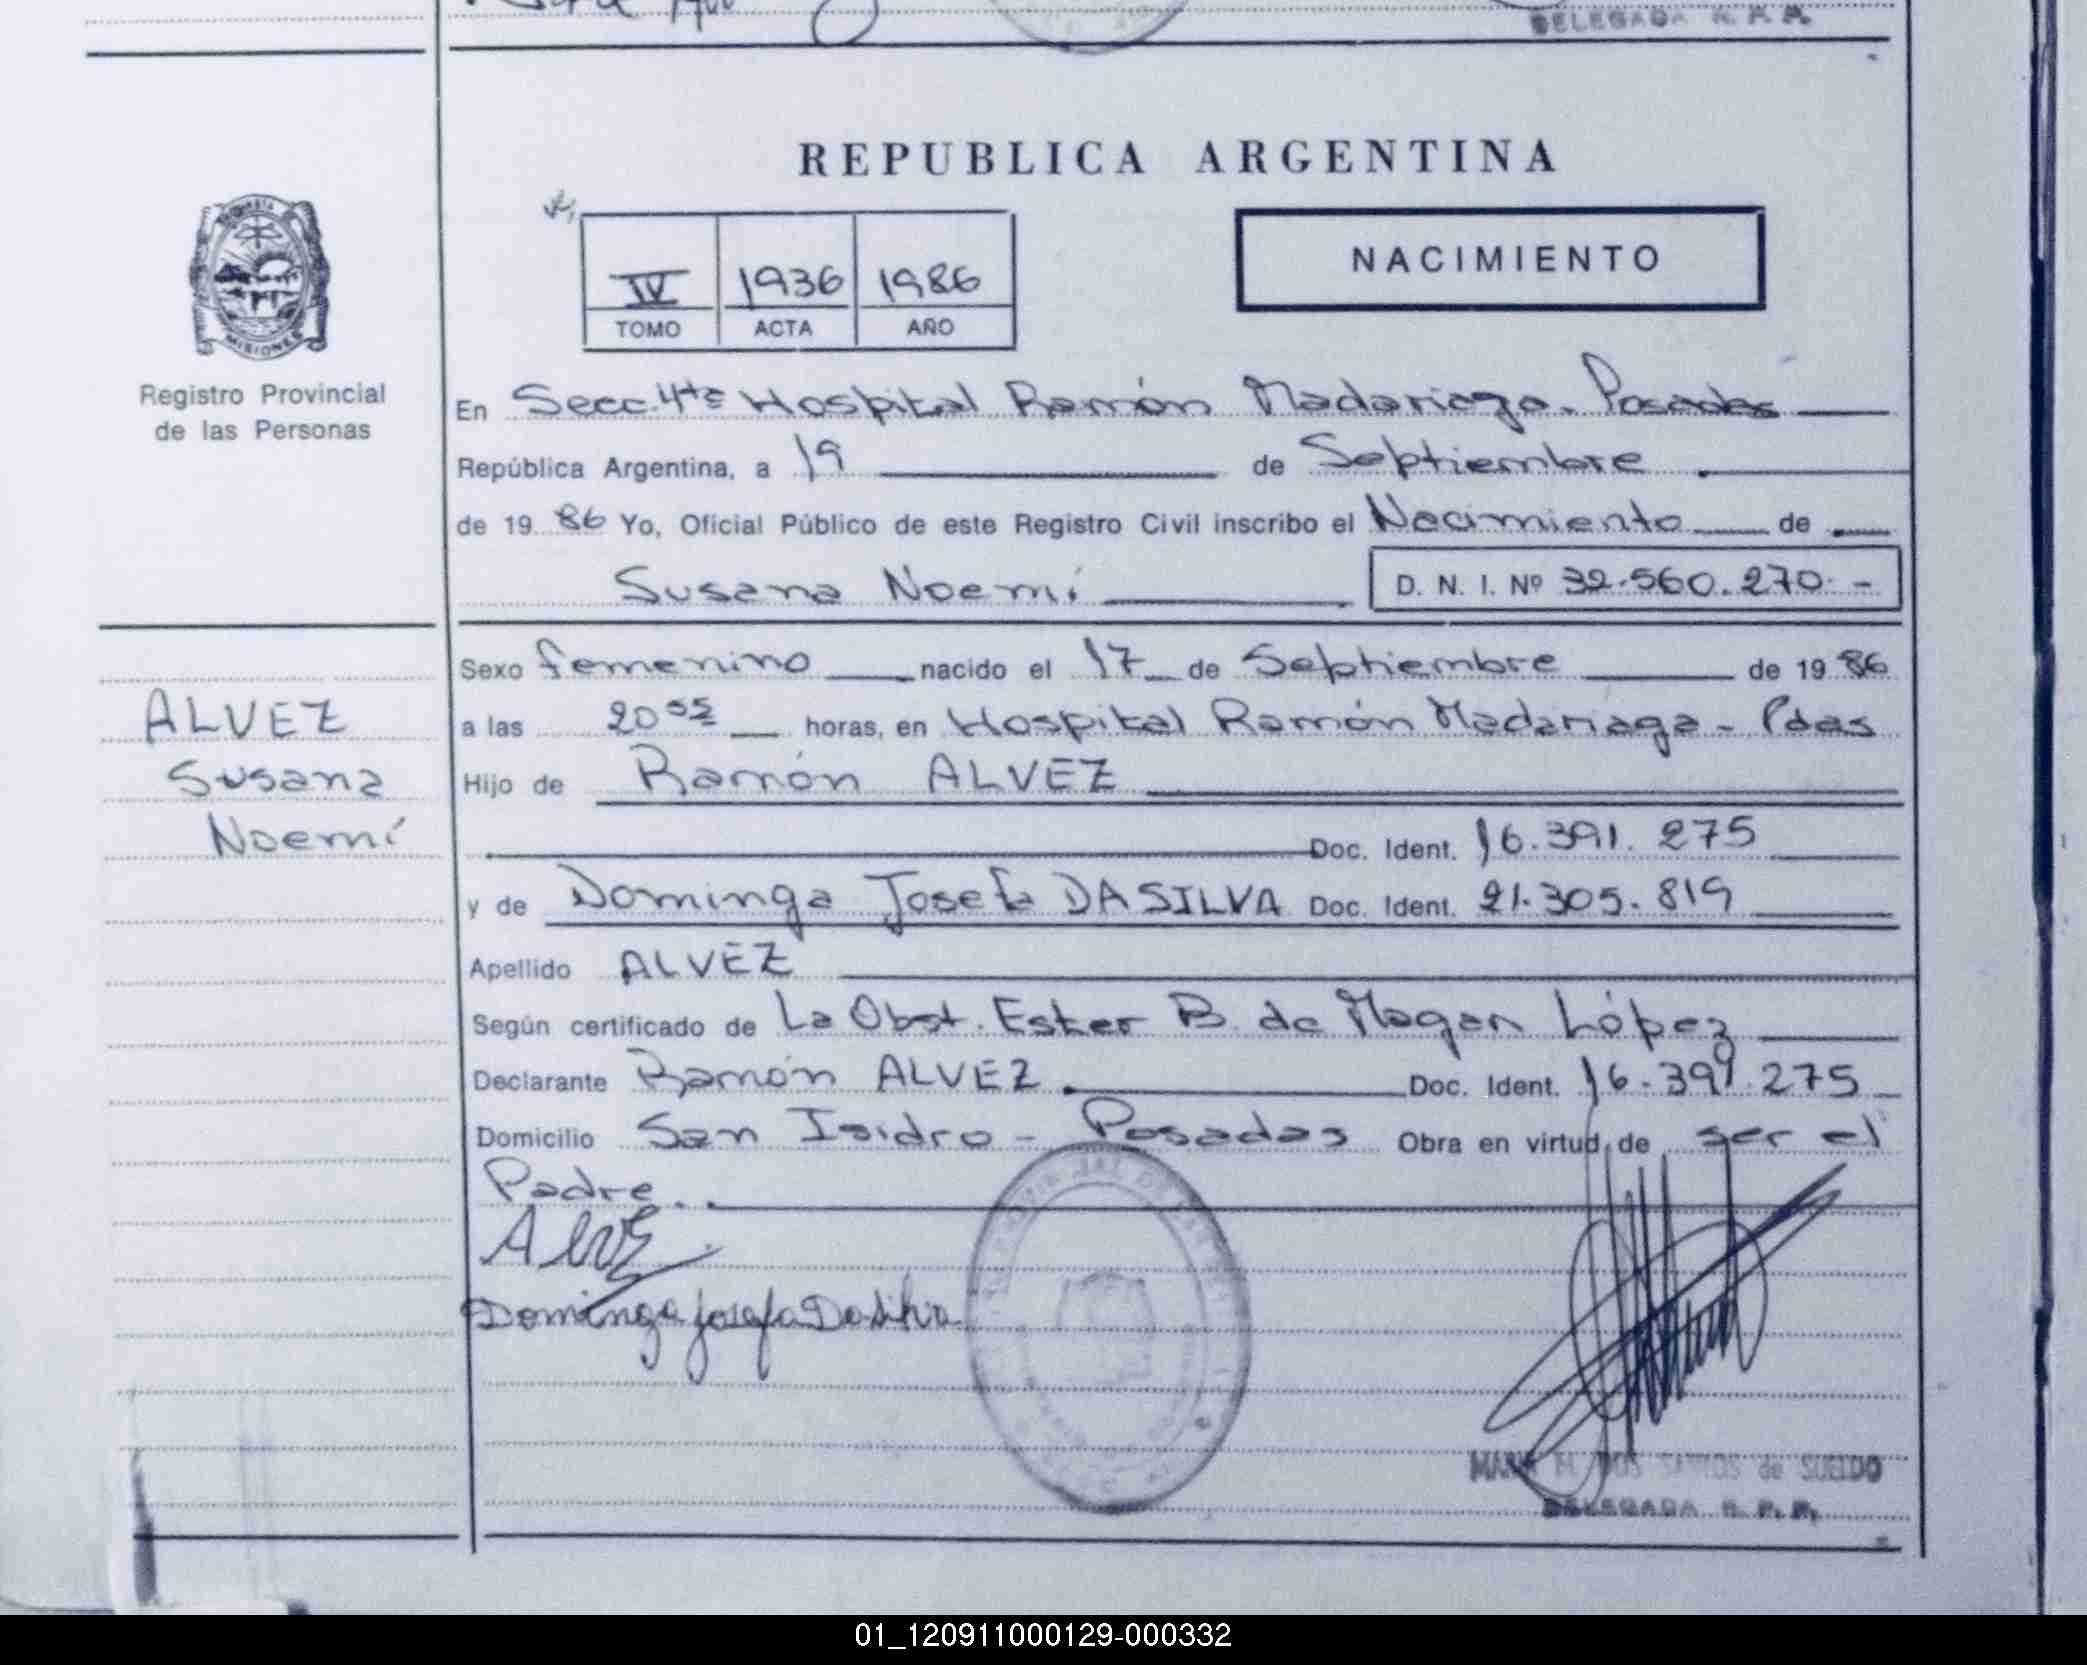 DELEGADA R. P. P.
REPUBLICA ARGENTINA
IV 1936 1986
TOMO ACTA AÑO
NACIMIENTO
MISIONES
Registro Provincial
de las Personas
En Secc. 4ta Hospital Ramón Madariaga. Posadas
República Argentina, a 19 de Septiembre
de 19 86 Yo, Oficial Público de este Registro Civil inscribo el Nacimiento de
Susana Noemí D. N. I. Nº 32.560.270.-
ALVEZ
Susana
Noemí
Sexo femenino nacido el 17 de Septiembre de 19 86
a las 20 55 horas, en Hospital Ramón Madariaga - Pdas
Hijo de Ramón ALVEZ
Doc. Ident. 16.391.275
y de Dominga Josefa DASILVA Doc. Ident. 21.305.819
Apellido ALVEZ
Según certificado de La Obst. Ester B. de Magan López
Declarante Ramón ALVEZ Doc. Ident. 16.391.275
Domicilio San Isidro - Posadas Obra en virtud de ser el
Padre.
Alvez
Dominga Josefa Dasilva
MARIA DOS SANTOS de SUELDO
DELEGADA R. P. P.
01_120911000129-000332